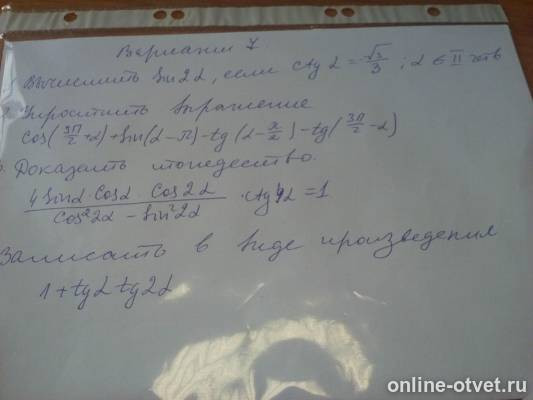 Вариант 7
Вычислить sin2α, если ctg α = √3/3; α ∈ II четв
Упростить выражение
cos(3π/2 + α) + sin(α - π) - tg(α - π/2) - tg(3π/2 - α)
Доказать тождество.
4 sinα · cosα · cos2α / cos²2α - sin²2α · ctg4α = 1
Записать в виде произведения
1 + tgα tg2α
online-otvet.ru